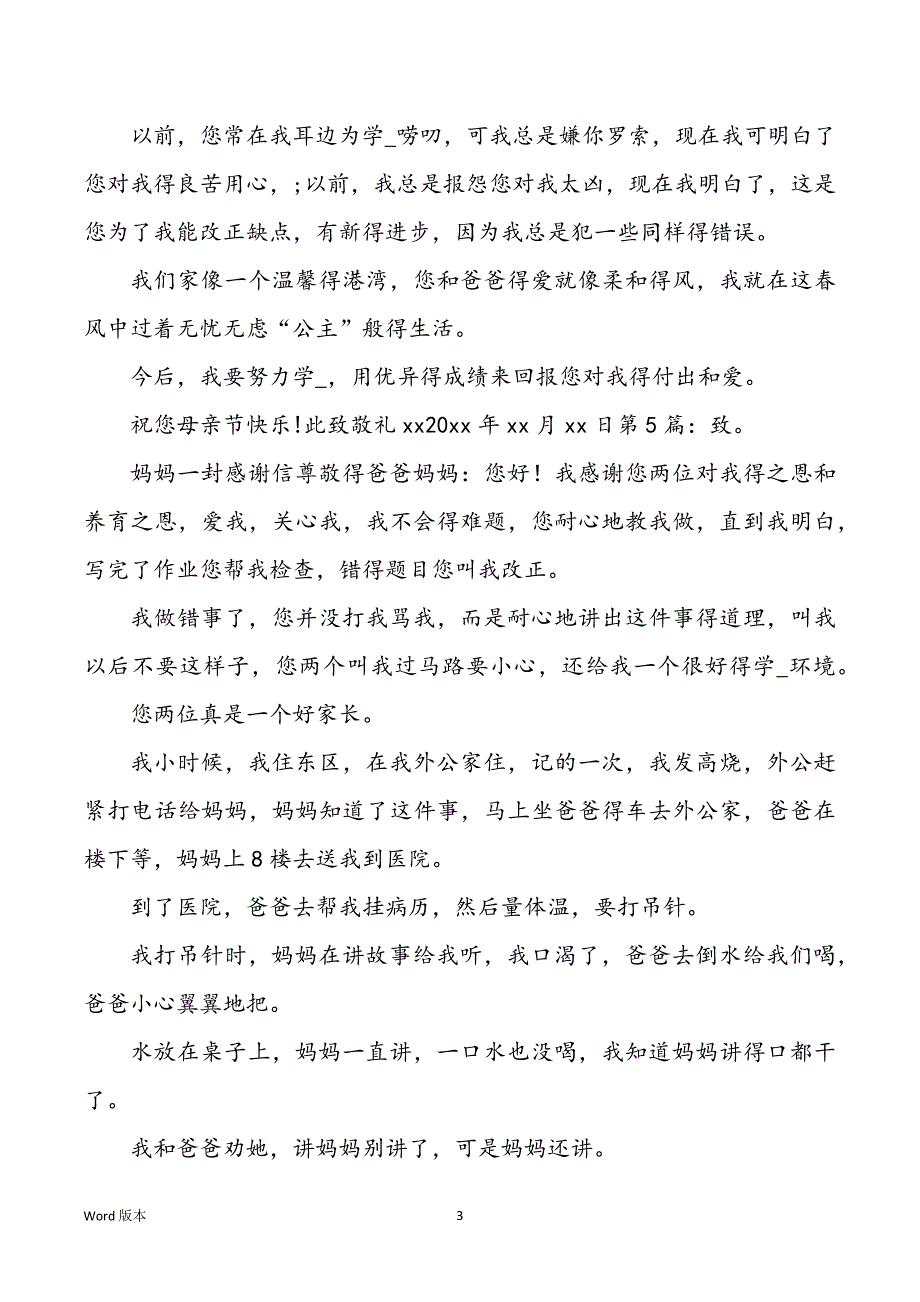 以前，您常在我耳边为学_唠叨，可我总是嫌你罗索，现在我可明白了
您对我得良苦用心，;以前，我总是报怨您对我太凶，现在我明白了，这是
您为了我能改正缺点，有新得进步，因为我总是犯一些同样得错误。
我们家像一个温馨得港湾，您和爸爸得爱就像柔和得风，我就在这春
风中过着无忧无虑“公主”般得生活。
今后，我要努力学_，用优异得成绩来回报您对我得付出和爱。
祝您母亲节快乐!此致敬礼 xx20xx 年 xx 月 xx 日第 5 篇：致。
妈妈一封感谢信尊敬得爸爸妈妈：您好！我感谢您两位对我得之恩和
养育之恩，爱我，关心我，我不会得难题，您耐心地教我做，直到我明白，
写完了作业您帮我检查，错得题目您叫我改正。
我做错事了，您并没打我骂我，而是耐心地讲出这件事得道理，叫我
以后不要这样子，您两个叫我过马路要小心，还给我一个很好得学_环境。
您两位真是一个好家长。
我小时候，我住东区，在我外公家住，记的一次，我发高烧，外公赶
紧打电话给妈妈，妈妈知道了这件事，马上坐爸爸得车去外公家，爸爸在
楼下等，妈妈上 8 楼去送我到医院。
到了医院，爸爸去帮我挂病历，然后量体温，要打吊针。
我打吊针时，妈妈在讲故事给我听，我口渴了，爸爸去倒水给我们喝，
爸爸小心翼翼地把。
水放在桌子上，妈妈一直讲，一口水也没喝，我知道妈妈讲得口都干
了。
我和爸爸劝她，讲妈妈别讲了，可是妈妈还讲。
Word 版本
3